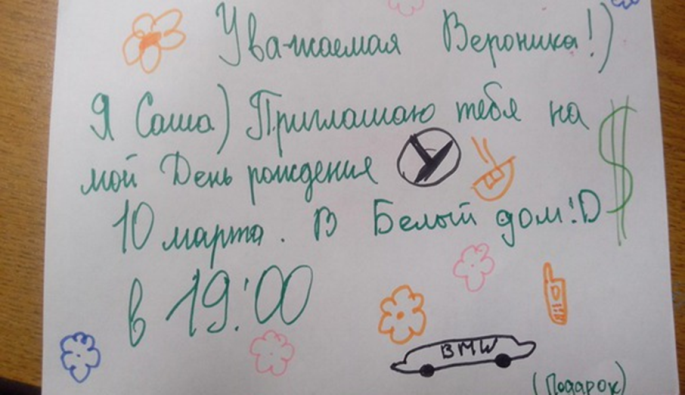 Уважаемая Вероника!)
Я Саша) Приглашаю тебя на
мой День рождения
10 марта. В Белый дом!:D $
в 19:00
BMW
(Подарок)